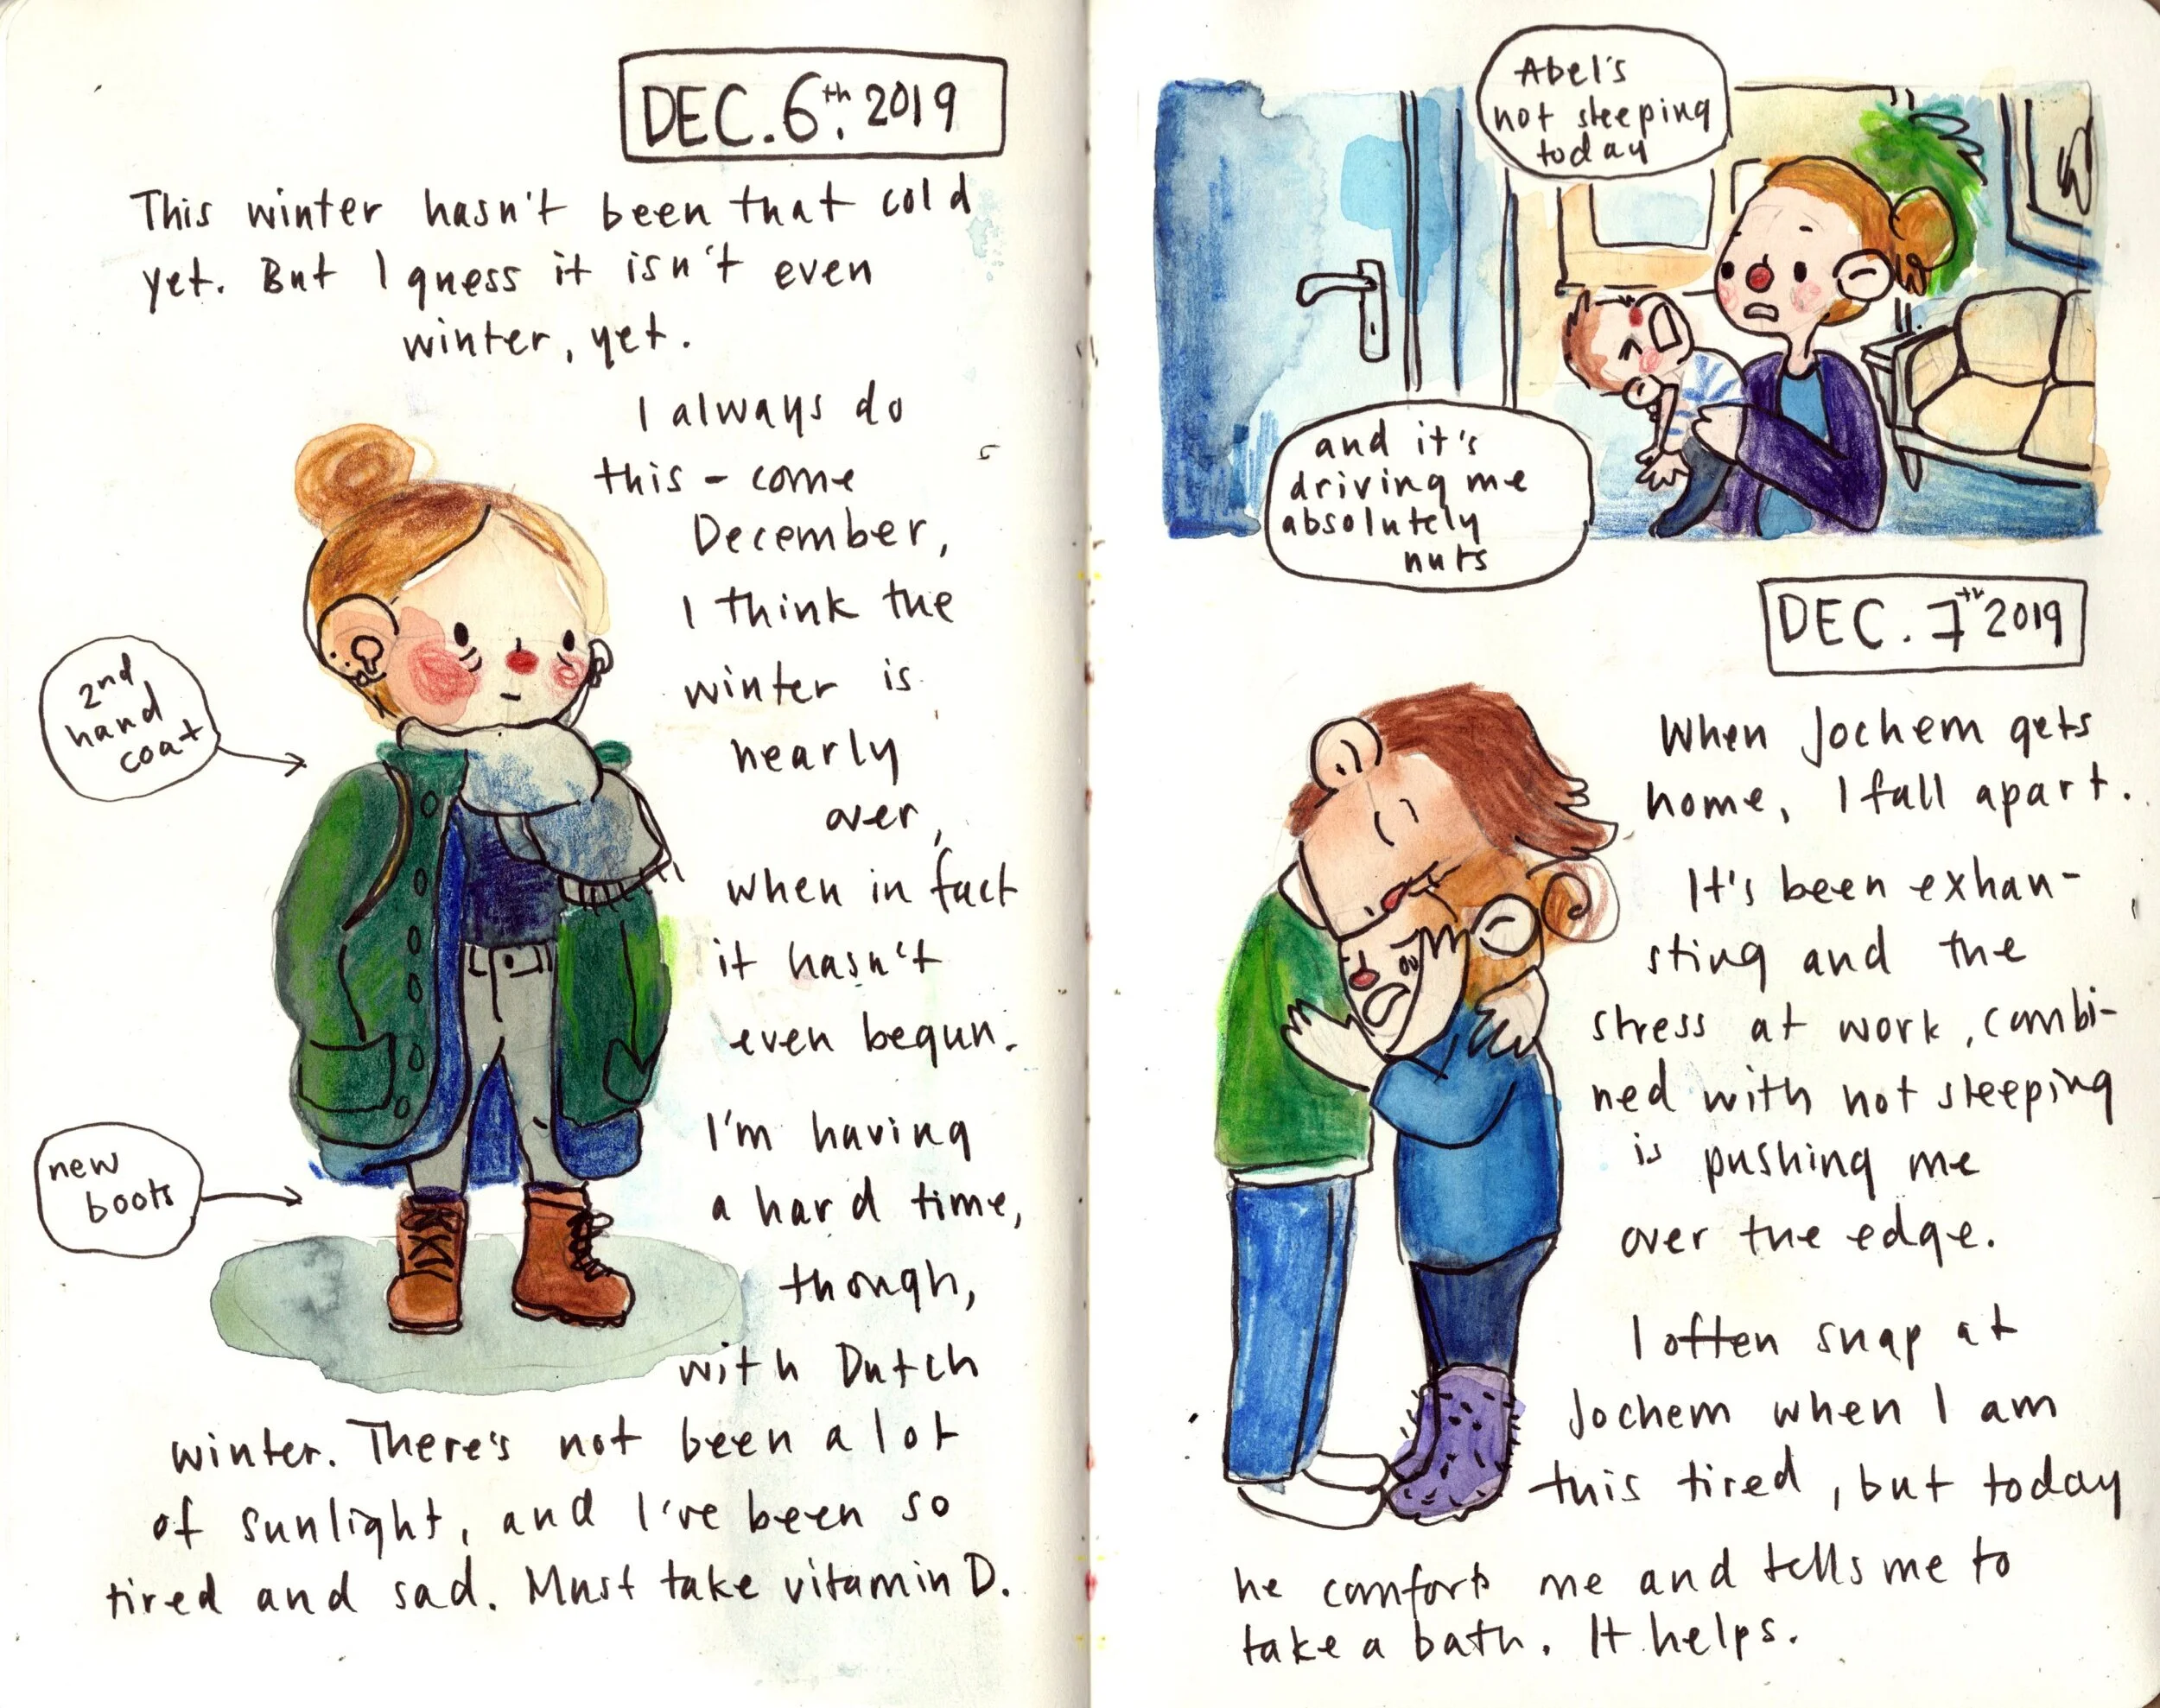 DEC. 6th. 2019
This winter hasn't been that cold
yet. But I guess it isn't even
winter, yet.
I always do
this - come
December,
I think the
winter is
nearly
over,
when in fact
it hasn't
even begun.
2nd
hand
coat
new
boots
I'm having
a hard time,
though,
with Dutch
winter. There's not been a lot
of sunlight, and I've been so
tired and sad. Must take vitamin D.
Abel's
not sleeping
today
and it's
driving me
absolutely
nuts
DEC. 7th 2019
When Jochem gets
home, I fall apart.
It's been exhau-
sting and the
stress at work, combi-
ned with not sleeping
is pushing me
over the edge.
I often snap at
Jochem when I am
this tired, but today
he comforts me and tells me to
take a bath. It helps.